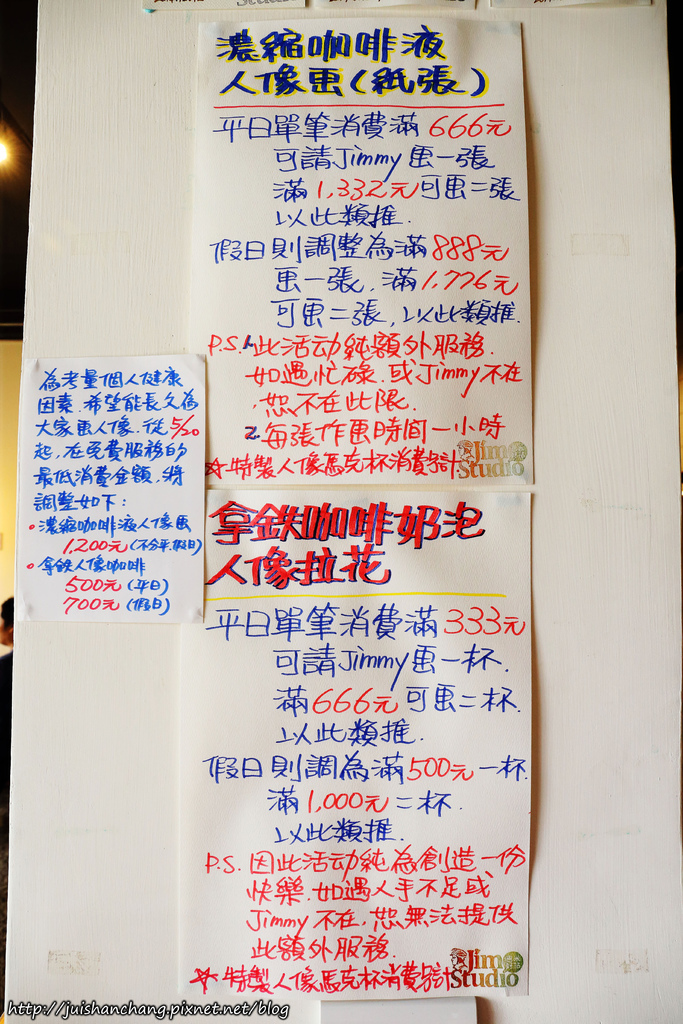 濃縮咖啡液
人像畫(紙張)
平日單筆消費滿 666元
可請Jimmy畫一張
滿1,332元可畫二張
以此類推.
假日則調整為滿888元
畫一張,滿1,776元
可畫二張,以此類推.
P.S.1.此活动純額外服務.
如遇忙碌.或Jimmy不在
,恕不在此限.
2.每張作畫時間一小時
☆特製人像馬克杯消費另計
Jim
Studio
為考量個人健康
因素.希望能長久為
大家畫人像.從5/20
起,在免費服務的
最低消費金額.將
調整如下:
。濃縮咖啡液人像畫
1,200元(不分平.假日)
。拿鉄人像咖啡
500元(平日)
700元(假日)
拿鉄咖啡奶泡
人像拉花
平日單筆消費滿333元
可請Jimmy畫一杯.
滿666元可畫二杯.
以此類推.
假日則調為滿500元一杯.
滿1,000元二杯.
以此類推.
P.S. 因此活动純為創造一份
快樂.如遇人手不足或
Jimmy不在,恕無法提供
此額外服務.
☆特製人像馬克杯消費另計
Jim
Studio
http://juishanchang.pixnet.net/blog